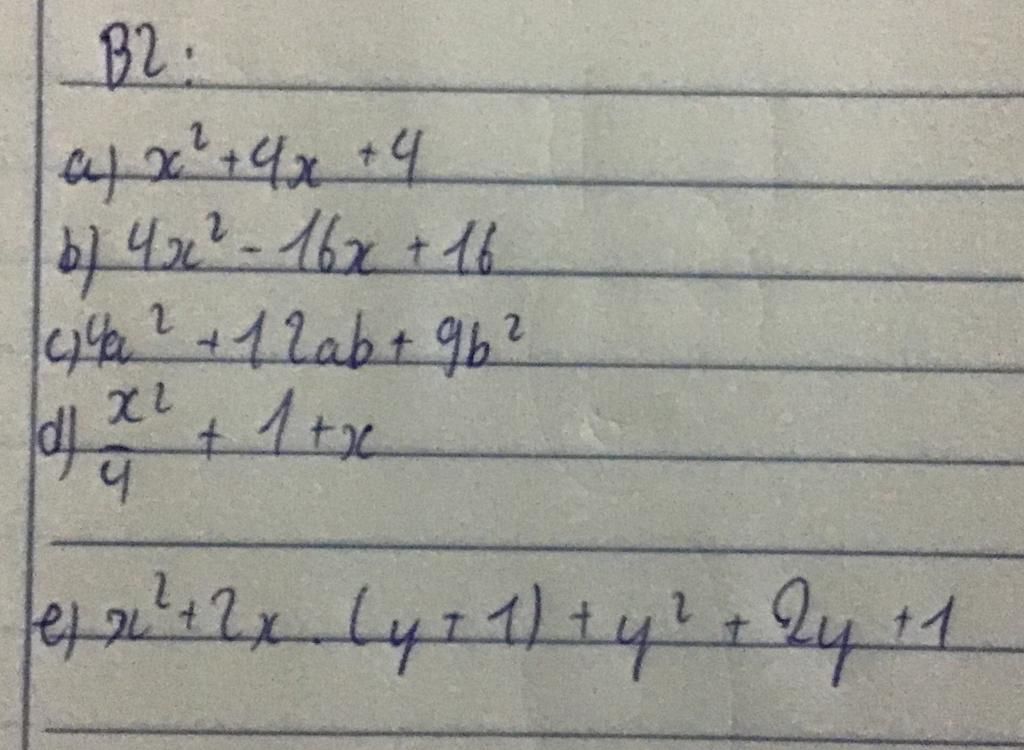 B2:
a) x² + 4x + 4
b) 4x² - 16x + 16
c) 4a² + 12ab + 9b²
d) x²/4 + 1 + x
e) x² + 2x . (y + 1) + y² + 2y + 1